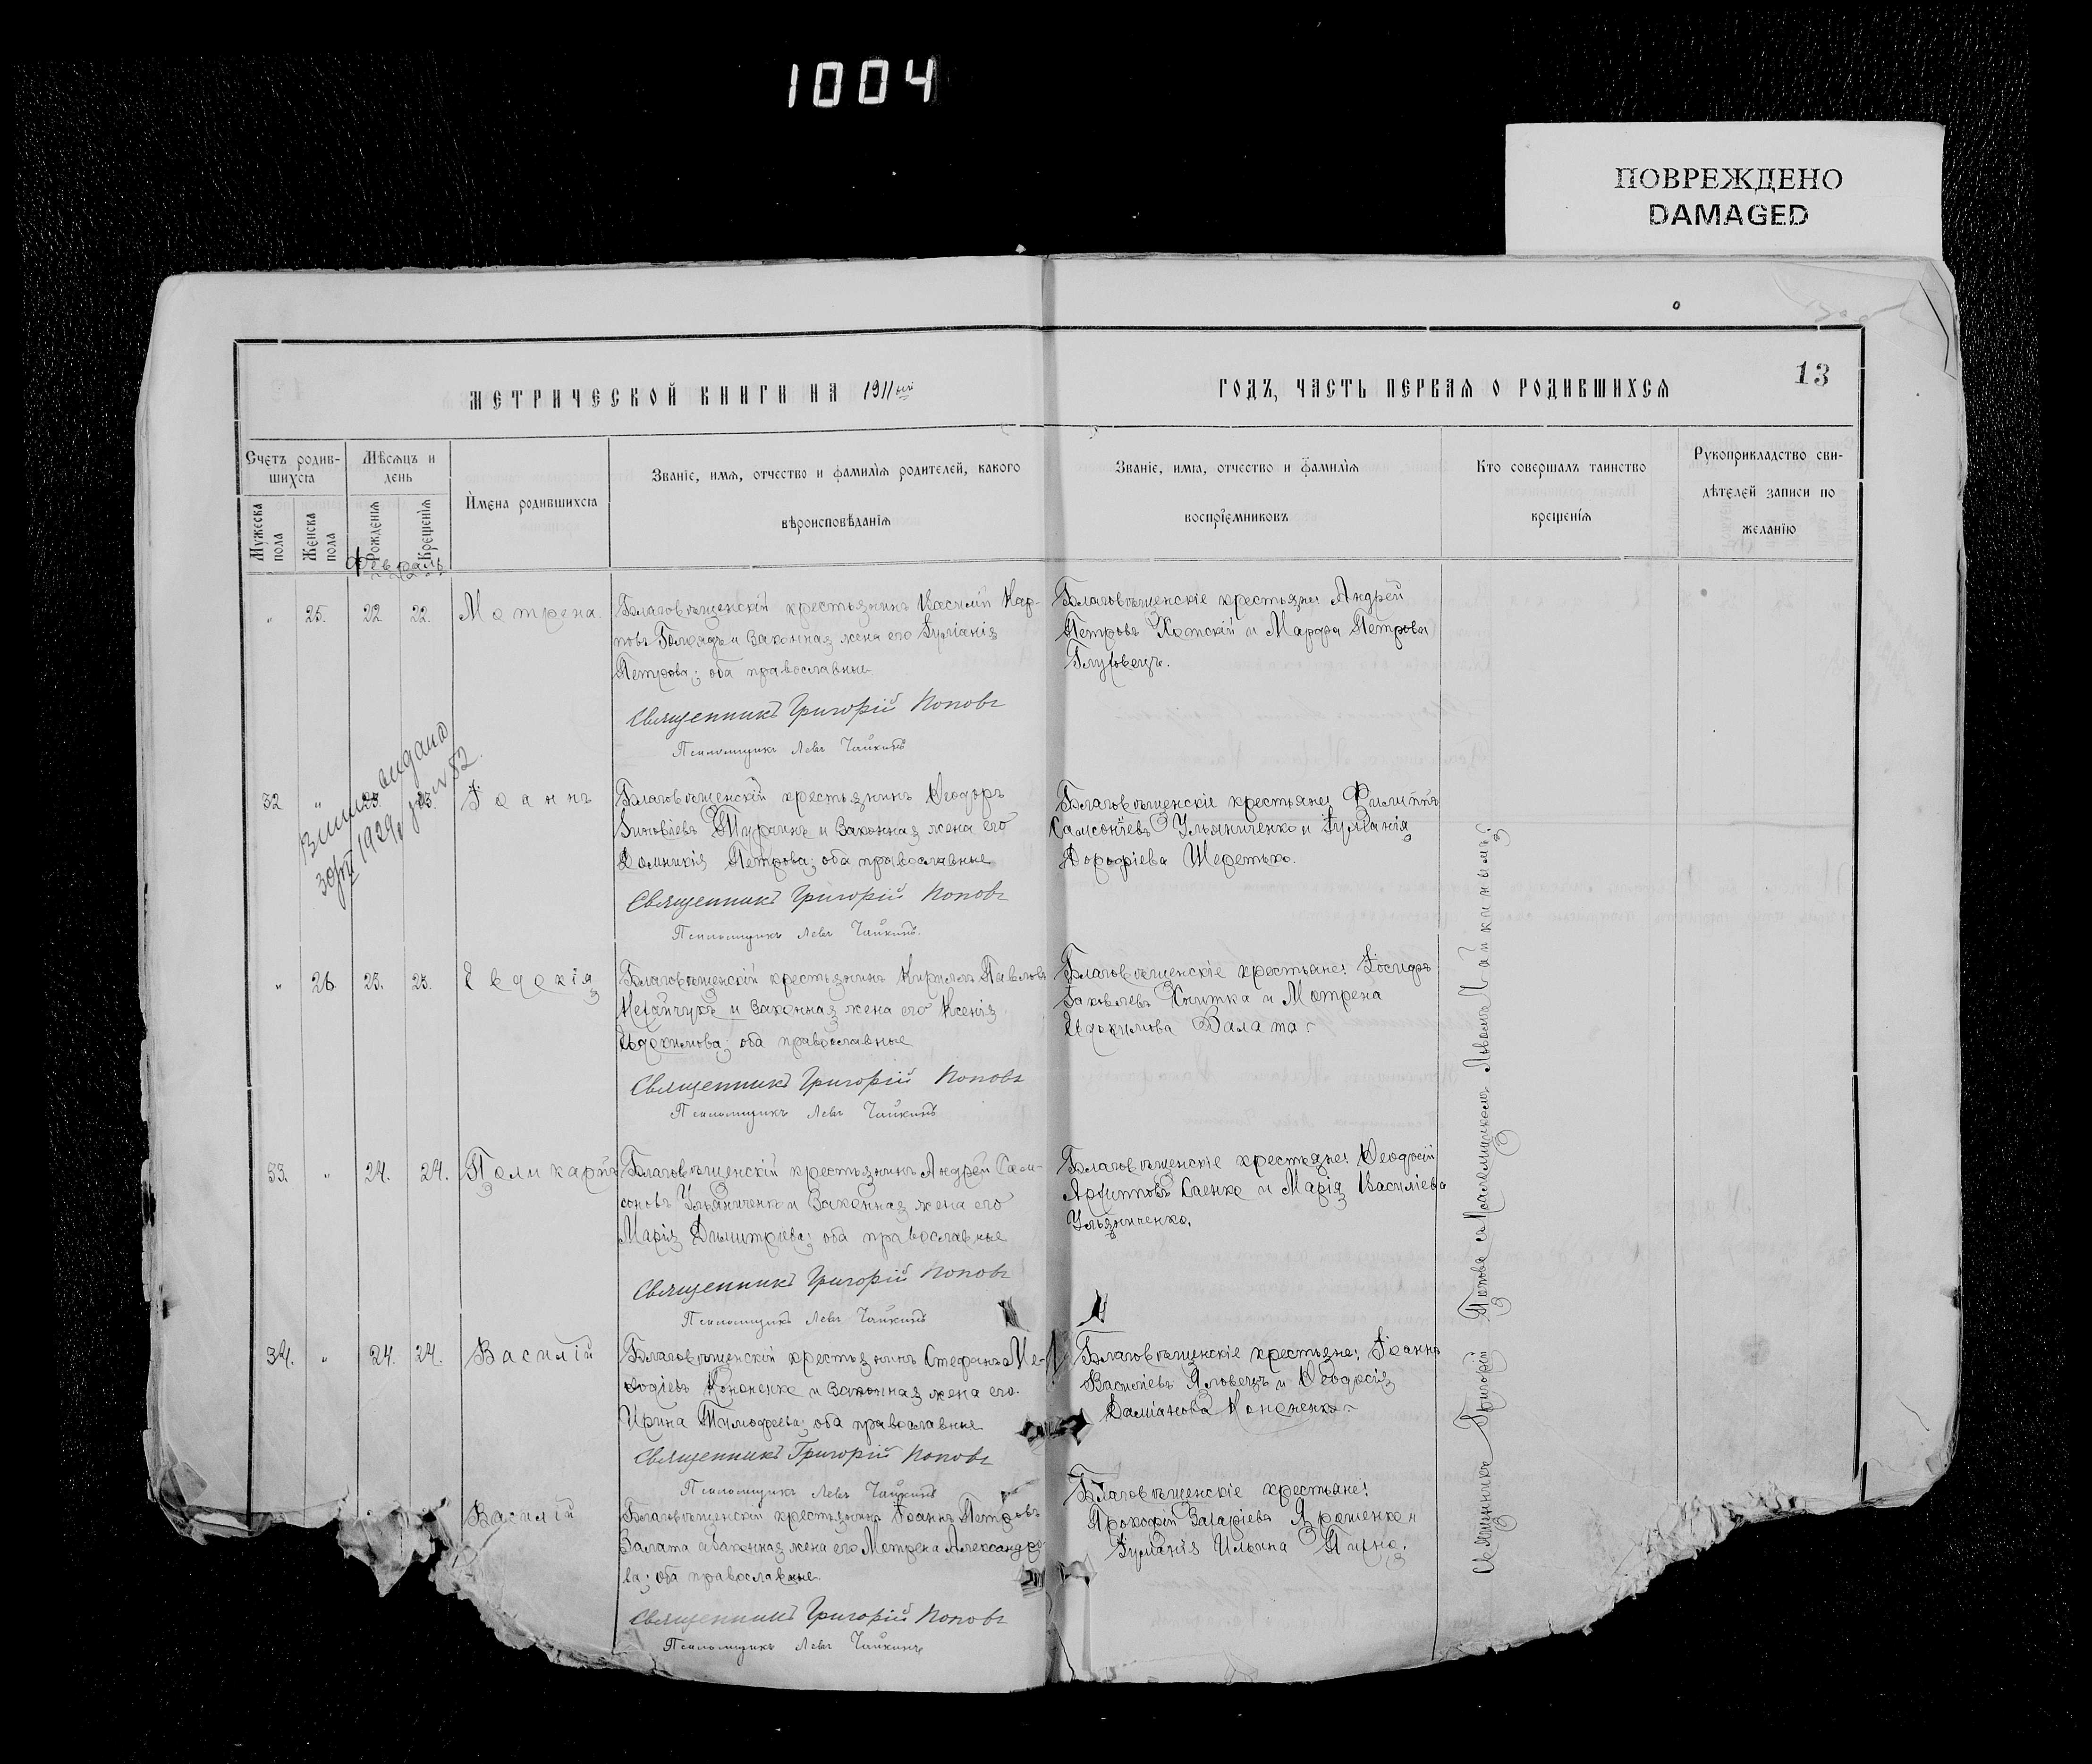 1004
ПОВРЕЖДЕНО
DAMAGED
МЕТРИЧЕСКОЙ КНИГИ НА 1911ый
ГОДЪ, ЧАСТЬ ПЕРВАЯ О РОДИВШИХСЯ
13
Счетъ родив-
шихся
Мужеска пола
Женска пола
Мѣсяцъ и
день
Рожденія
Крещенія
Имена родившихся
Званіе, имя, отчество и фамилія родителей, какого
вѣроисповѣданія
Званіе, имя, отчество и фамилія
воспріемниковъ
Кто совершалъ таинство
крещенія
Рукоприкладство сви-
дѣтелей записи по
желанію
Февраль
" 25. 22 22. Мотрена.
Благовѣщенскій крестьянинъ Василій Кар-
повъ и законная жена его Іуліанія
Петрова; оба православные
Священникъ Григорій Поповъ
Псаломщикъ Левъ Чайкинъ
Благовѣщенскіе крестьяне: Андрей
Петровъ Хотскій и Марфа Петрова
Глуховецъ.
видана
1929
82
32 " 23. 23. Іоаннъ
Благовѣщенскій крестьянинъ Ѳеодоръ
Зиновіевъ и законная жена его
Домникія Петрова; оба православные
Священникъ Григорій Поповъ
Псаломщикъ Левъ Чайкинъ.
Благовѣщенскіе крестьяне: Филиппъ
Самсоніевъ Ульяниченко и Іуліанія
Дороѳіева Шеретько.
" 26. 23. 23. Евдокія
Благовѣщенскій крестьянинъ Кириллъ Павловъ
и законная жена его Ксенія
Евдокимова; оба православные
Священникъ Григорій Поповъ
Псаломщикъ Левъ Чайкинъ
Благовѣщенскіе крестьяне: Іосифъ
Іаковлевъ и Мотрена
Евдокимова Балата.
33. " 24. 24. Поликарпъ
Благовѣщенскій крестьянинъ Андрей Сам-
соновъ Ульяниченко и законная жена его
Марія Димитріева; оба православные
Священникъ Григорій Поповъ
Псаломщикъ Левъ Чайкинъ
Благовѣщенскіе крестьяне: Ѳеодосій
Архиповъ Саенко и Марія Василіева
Ульяниченко.
34. " 24. 24. Василій
Благовѣщенскій крестьянинъ Стефанъ Ме-
ѳодіевъ Кононенко и законная жена его
Ирина Тимофеева; оба православные
Священникъ Григорій Поповъ
Псаломщикъ Левъ Чайкинъ
Благовѣщенскіе крестьяне: Іоаннъ
Василіевъ Яловецъ и Ѳеодосія
Даміанова Кононенко.
Василій
Благовѣщенскій крестьянинъ Іоаннъ Петровъ
Балата и законная жена его Мотрена Александро-
ва; оба православные.
Священникъ Григорій Поповъ
Псаломщикъ Левъ Чайкинъ
Благовѣщенскіе крестьяне:
Прокофій Захаріевъ Ярошенко и
Іуліанія Ильина
Священникъ Григорій Поповъ съ Псаломщикомъ Львомъ Чайкинымъ.